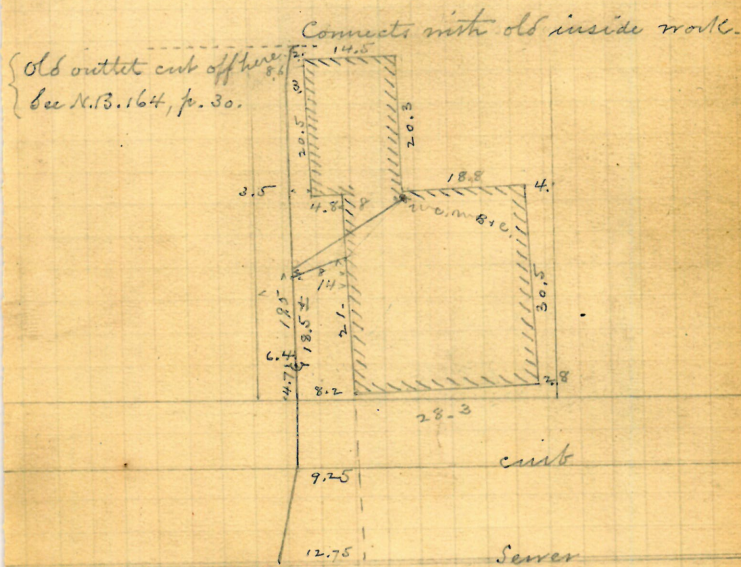 Connects with old inside work.
Old outlet cut off here
See N.B. 164, p. 30.
14.5
8.6
20.5
20.3
3.5
4.8
8
18.8
4.
w.c. in B+C.
14
30.5
195
18.5±
21-
6.4
14.7±
8.2
2.8
28-3
curb
9.25
12.75
Sewer